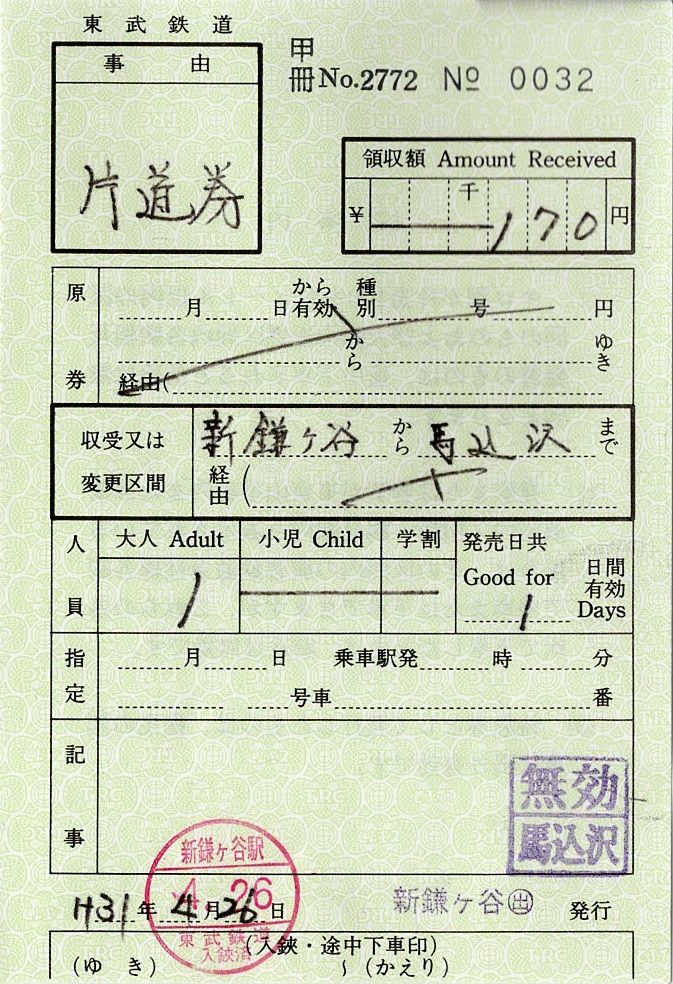 東武鉄道
事由
片道券
甲
冊 No.2772 № 0032
領収額 Amount Received
千
¥ 170 円
原券
月 日 から有効 種別 号 円
から ゆき
経由(
収受又は
変更区間
新鎌ヶ谷 から 馬込沢 まで
経由(
人員
大人 Adult 小児 Child 学割 発売日共
Good for 日間有効
1 1 Days
指定
月 日 乗車駅発 時 分
号車 番
記事
無効
馬込沢
新鎌ヶ谷駅
4.26
東武鉄道
入鋏済
H31年 4月 26日 新鎌ヶ谷出 発行
(入鋏・途中下車印)
(ゆき) ~ (かえり)